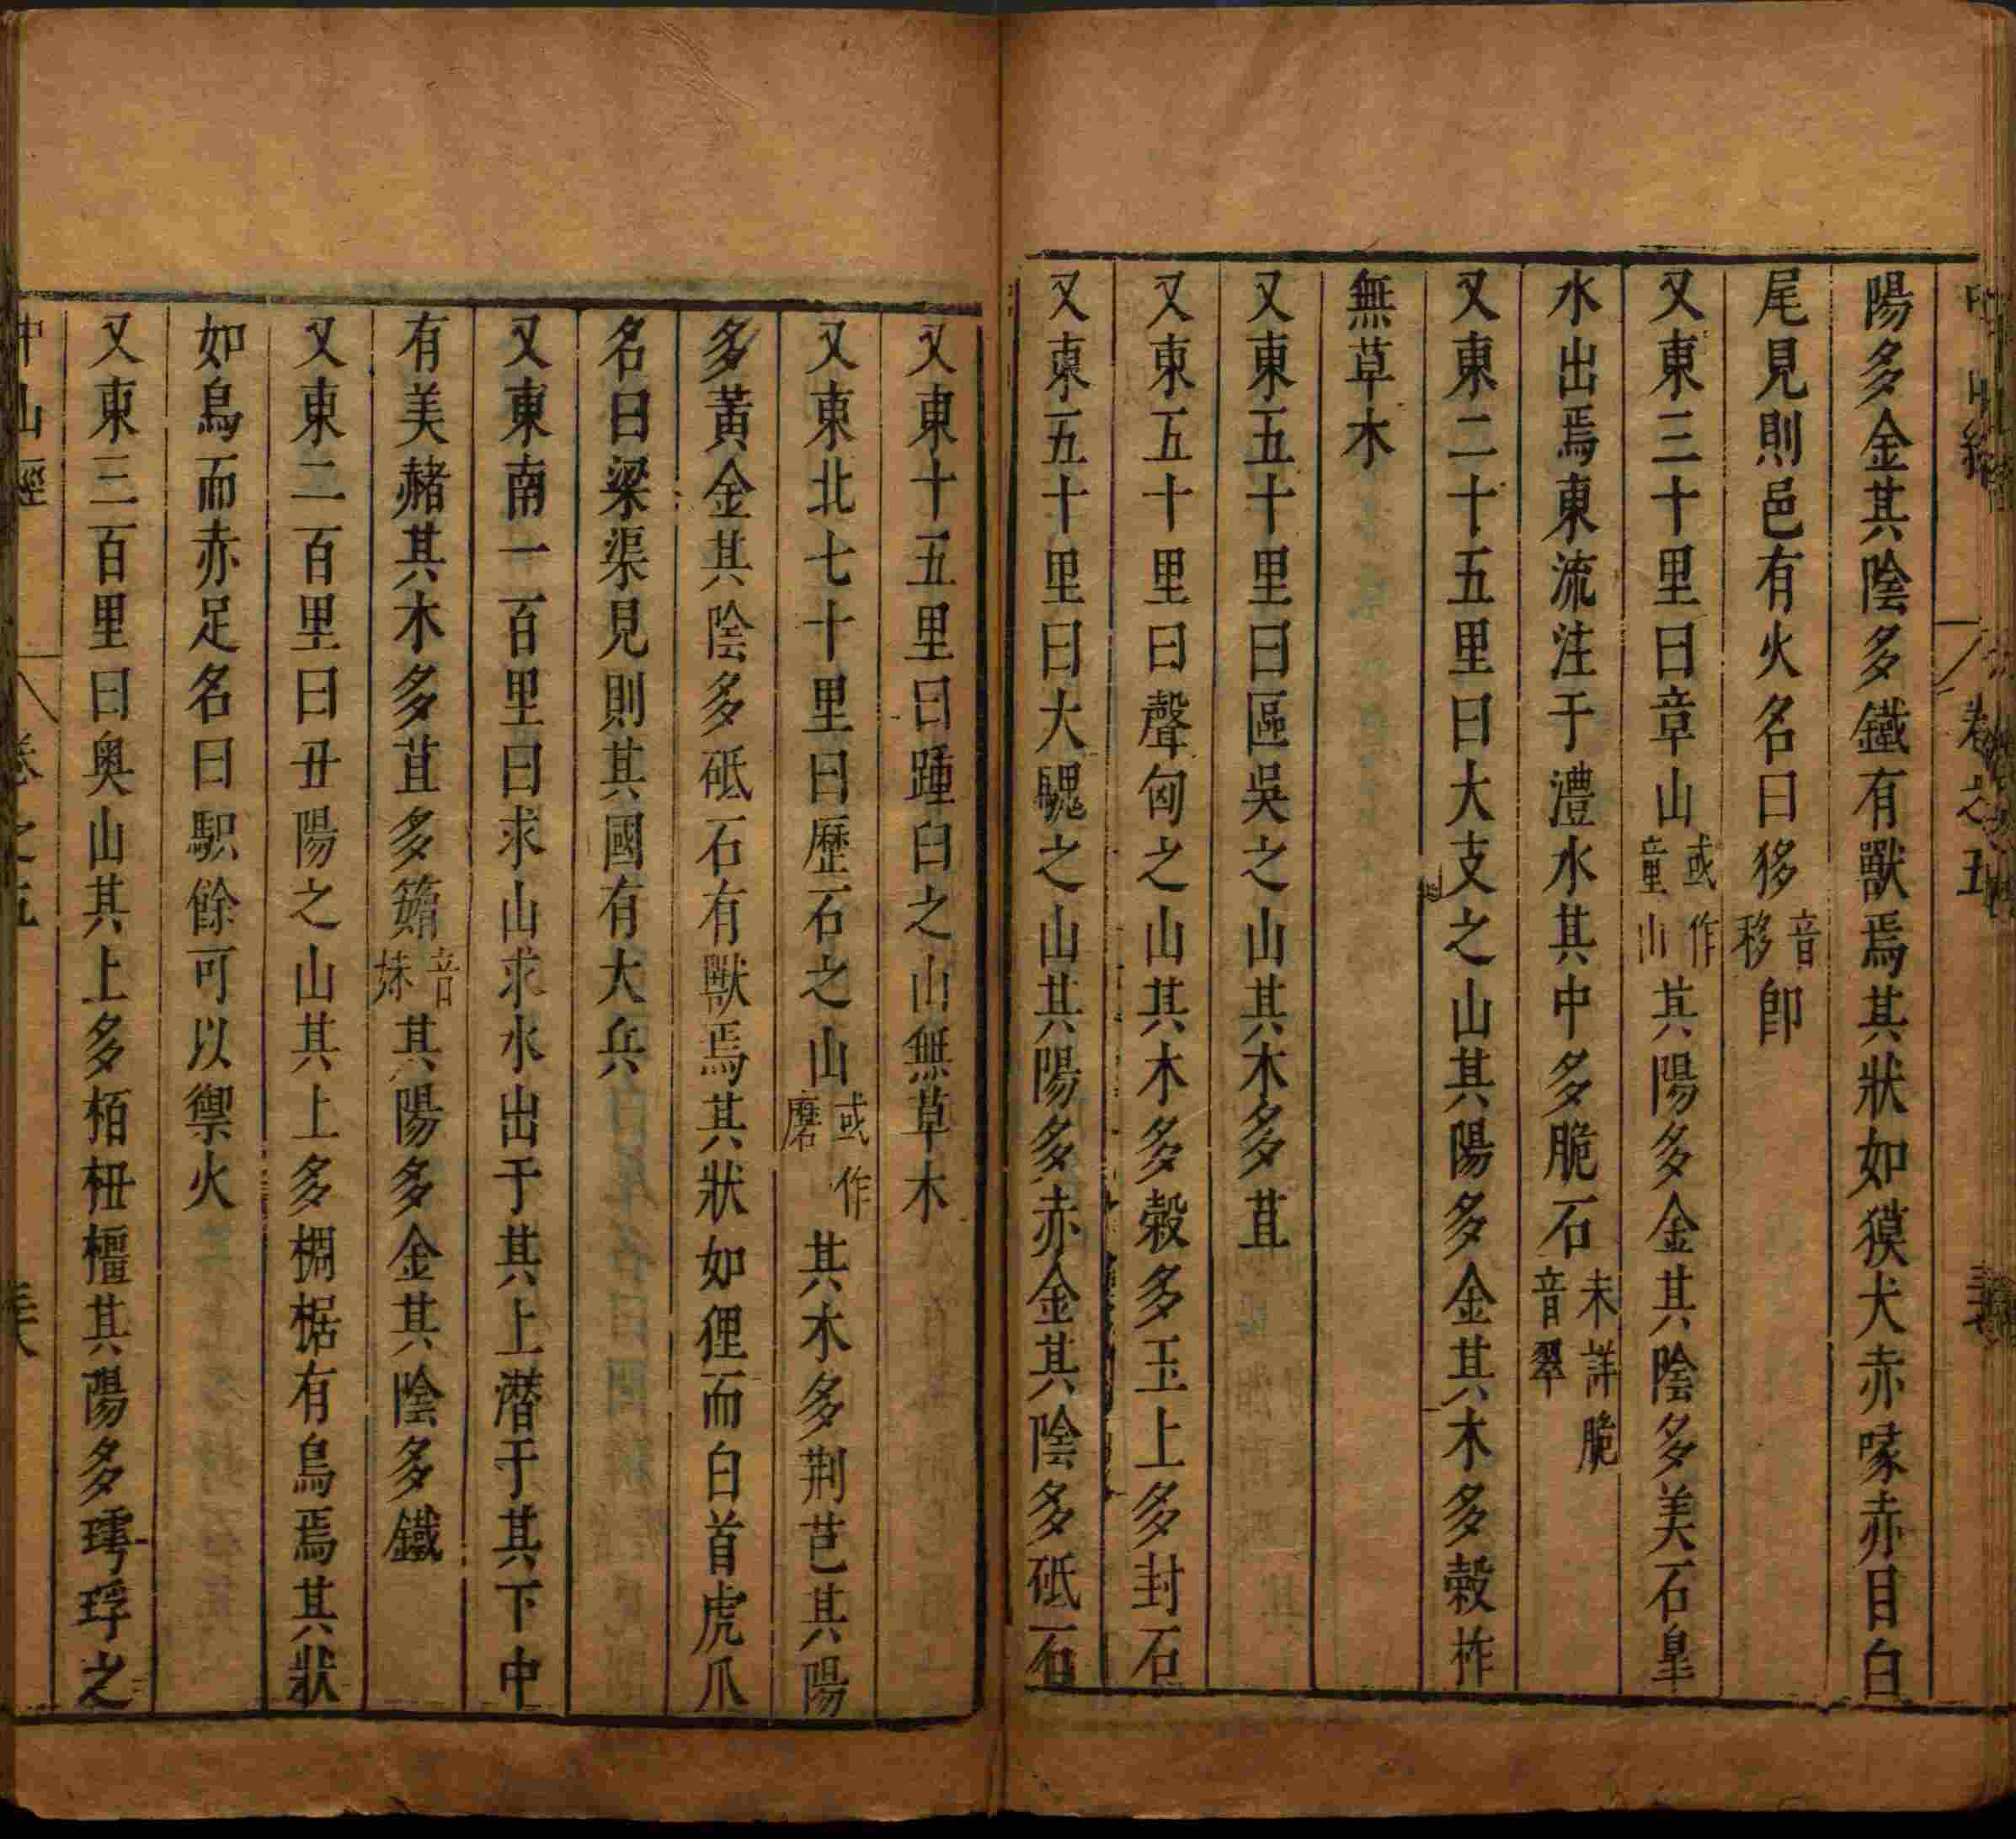 陽多金其陰多鐵有獸焉其狀如獏犬赤喙赤目白
尾見則邑有火名曰㹭音移即
又東三十里曰章山或作童山其陽多金其陰多美石皐
水出焉東流注于澧水其中多脆石未詳脆音翠
又東二十五里曰大支之山其陽多金其木多榖柞
無草木
又東五十里曰區吳之山其木多苴
又東五十里曰聲匈之山其木多榖多玉上多封石
又東五十里曰大騩之山其陽多赤金其陰多砥石
又東十五里曰踵臼之山無草木
又東北七十里曰歷石之山或作磨其木多荆芑其陽
多黃金其陰多砥石有獸焉其狀如狸而白首虎爪
名曰梁渠見則其國有大兵
又東南一百里曰求山求水出于其上潜于其下中
有美赭其木多苴多䉋音妹其陽多金其陰多鐵
又東二百里曰丑陽之山其上多椆椐有鳥焉其狀
如烏而赤足名曰䳅餘可以禦火
又東三百里曰奥山其上多栢杻橿其陽多㻬琈之
中山經 卷之五